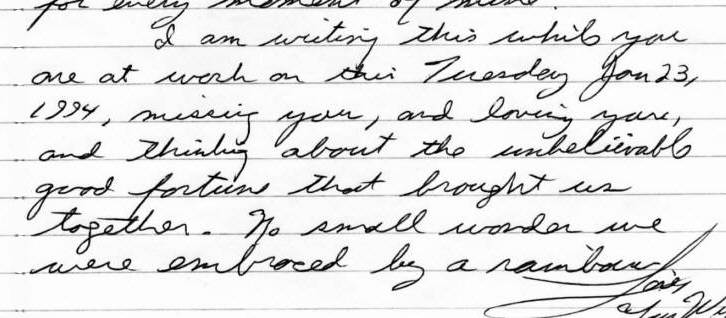 for every moment of mine.
I am writing this while you
are at work on this Tuesday Jan 23,
1994, missing you, and loving you,
and thinking about the unbelievable
good fortune that brought us
together. No small wonder we
were embraced by a rainbow
Love,